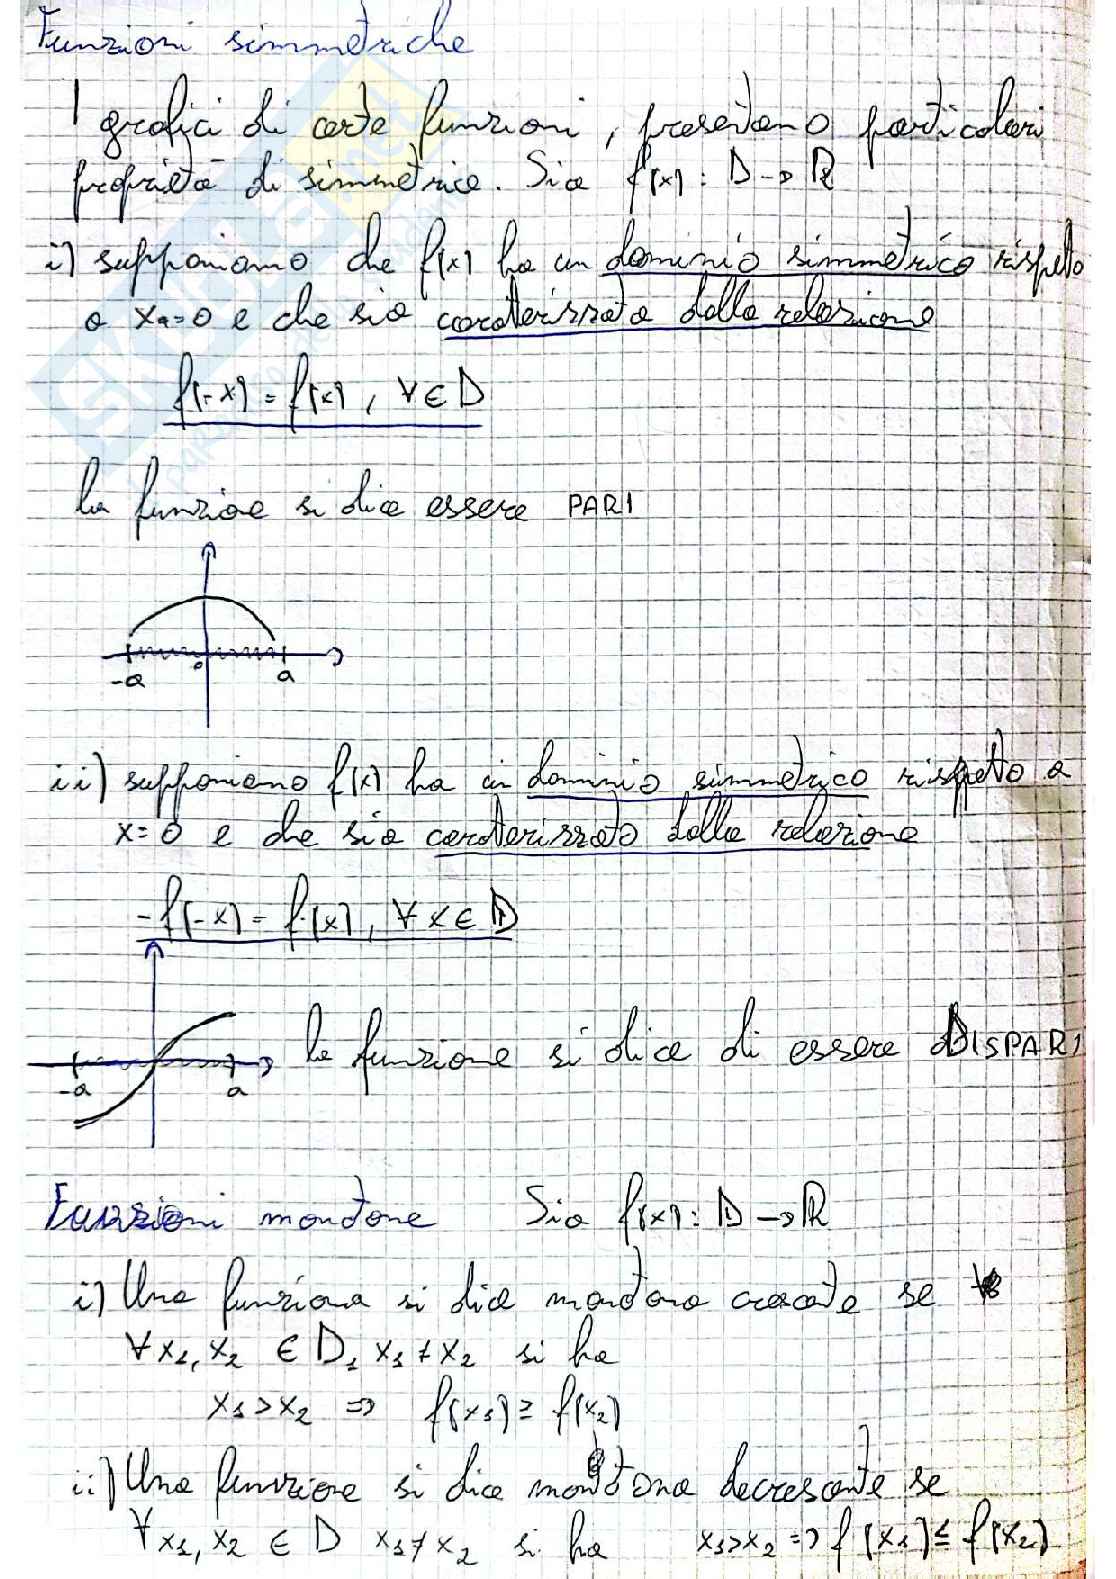 Funzioni simmetriche
I grafici di certe funzioni, presentano particolari
proprietà di simmetrica. Sia f(x): D → R
i) supponiamo che f(x) ha un dominio simmetrico rispetto
a x₀=0 e che sia caratterizzata dalla relazione
f(-x) = f(x), ∀ ∈ D
la funzione si dice essere PARI
-a o a
ii) supponiamo f(x) ha un dominio simmetrico rispetto a
x=0 e che sia caratterizzato dalla relazione
-f(-x) = f(x), ∀ x ∈ D
la funzione si dice di essere DISPARI
-a a
Funzioni monotone Sia f(x): D → R
i) Una funziona si dice monotona crescente se
∀ x₁, x₂ ∈ D, x₁ ≠ x₂ si ha
x₁ > x₂ ⇒ f(x₁) ≥ f(x₂)
ii) Una funzione si dice monotona decrescente se
∀ x₁, x₂ ∈ D x₁ ≠ x₂ si ha x₁>x₂ ⇒ f(x₁) ≤ f(x₂)